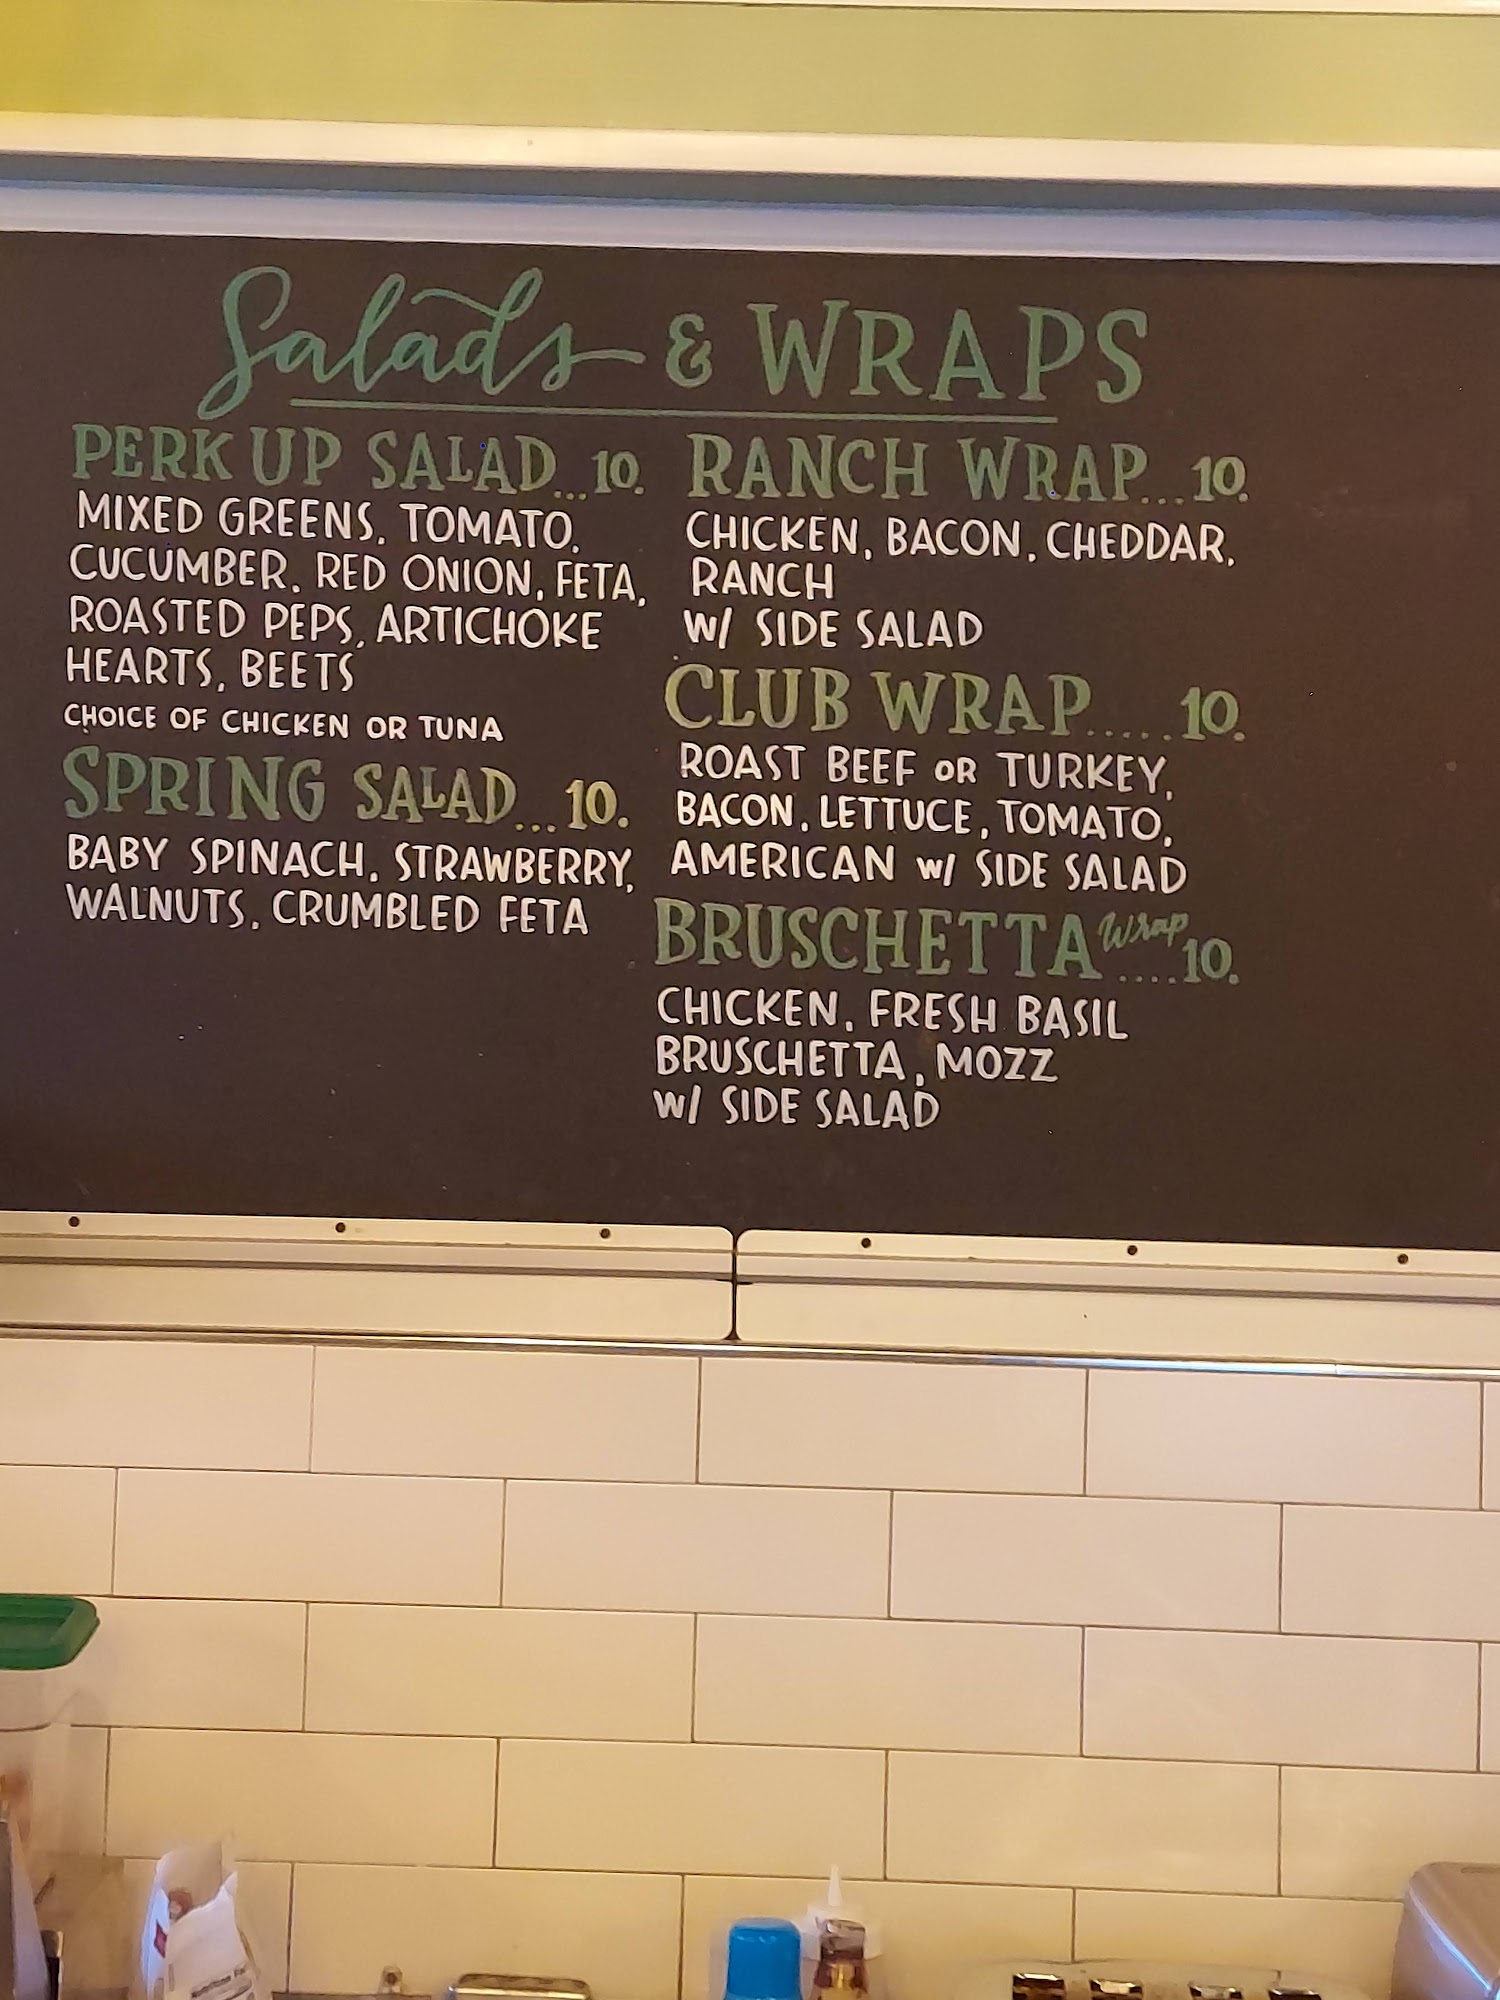 Salads & WRAPS
PERK UP SALAD...10.
MIXED GREENS, TOMATO,
CUCUMBER, RED ONION, FETA,
ROASTED PEPS, ARTICHOKE
HEARTS, BEETS
CHOICE OF CHICKEN OR TUNA
SPRING SALAD...10.
BABY SPINACH, STRAWBERRY,
WALNUTS, CRUMBLED FETA
RANCH WRAP...10.
CHICKEN, BACON, CHEDDAR,
RANCH
W/ SIDE SALAD
CLUB WRAP.....10.
ROAST BEEF OR TURKEY,
BACON, LETTUCE, TOMATO,
AMERICAN W/ SIDE SALAD
BRUSCHETTA Wrap....10.
CHICKEN, FRESH BASIL
BRUSCHETTA, MOZZ
W/ SIDE SALAD